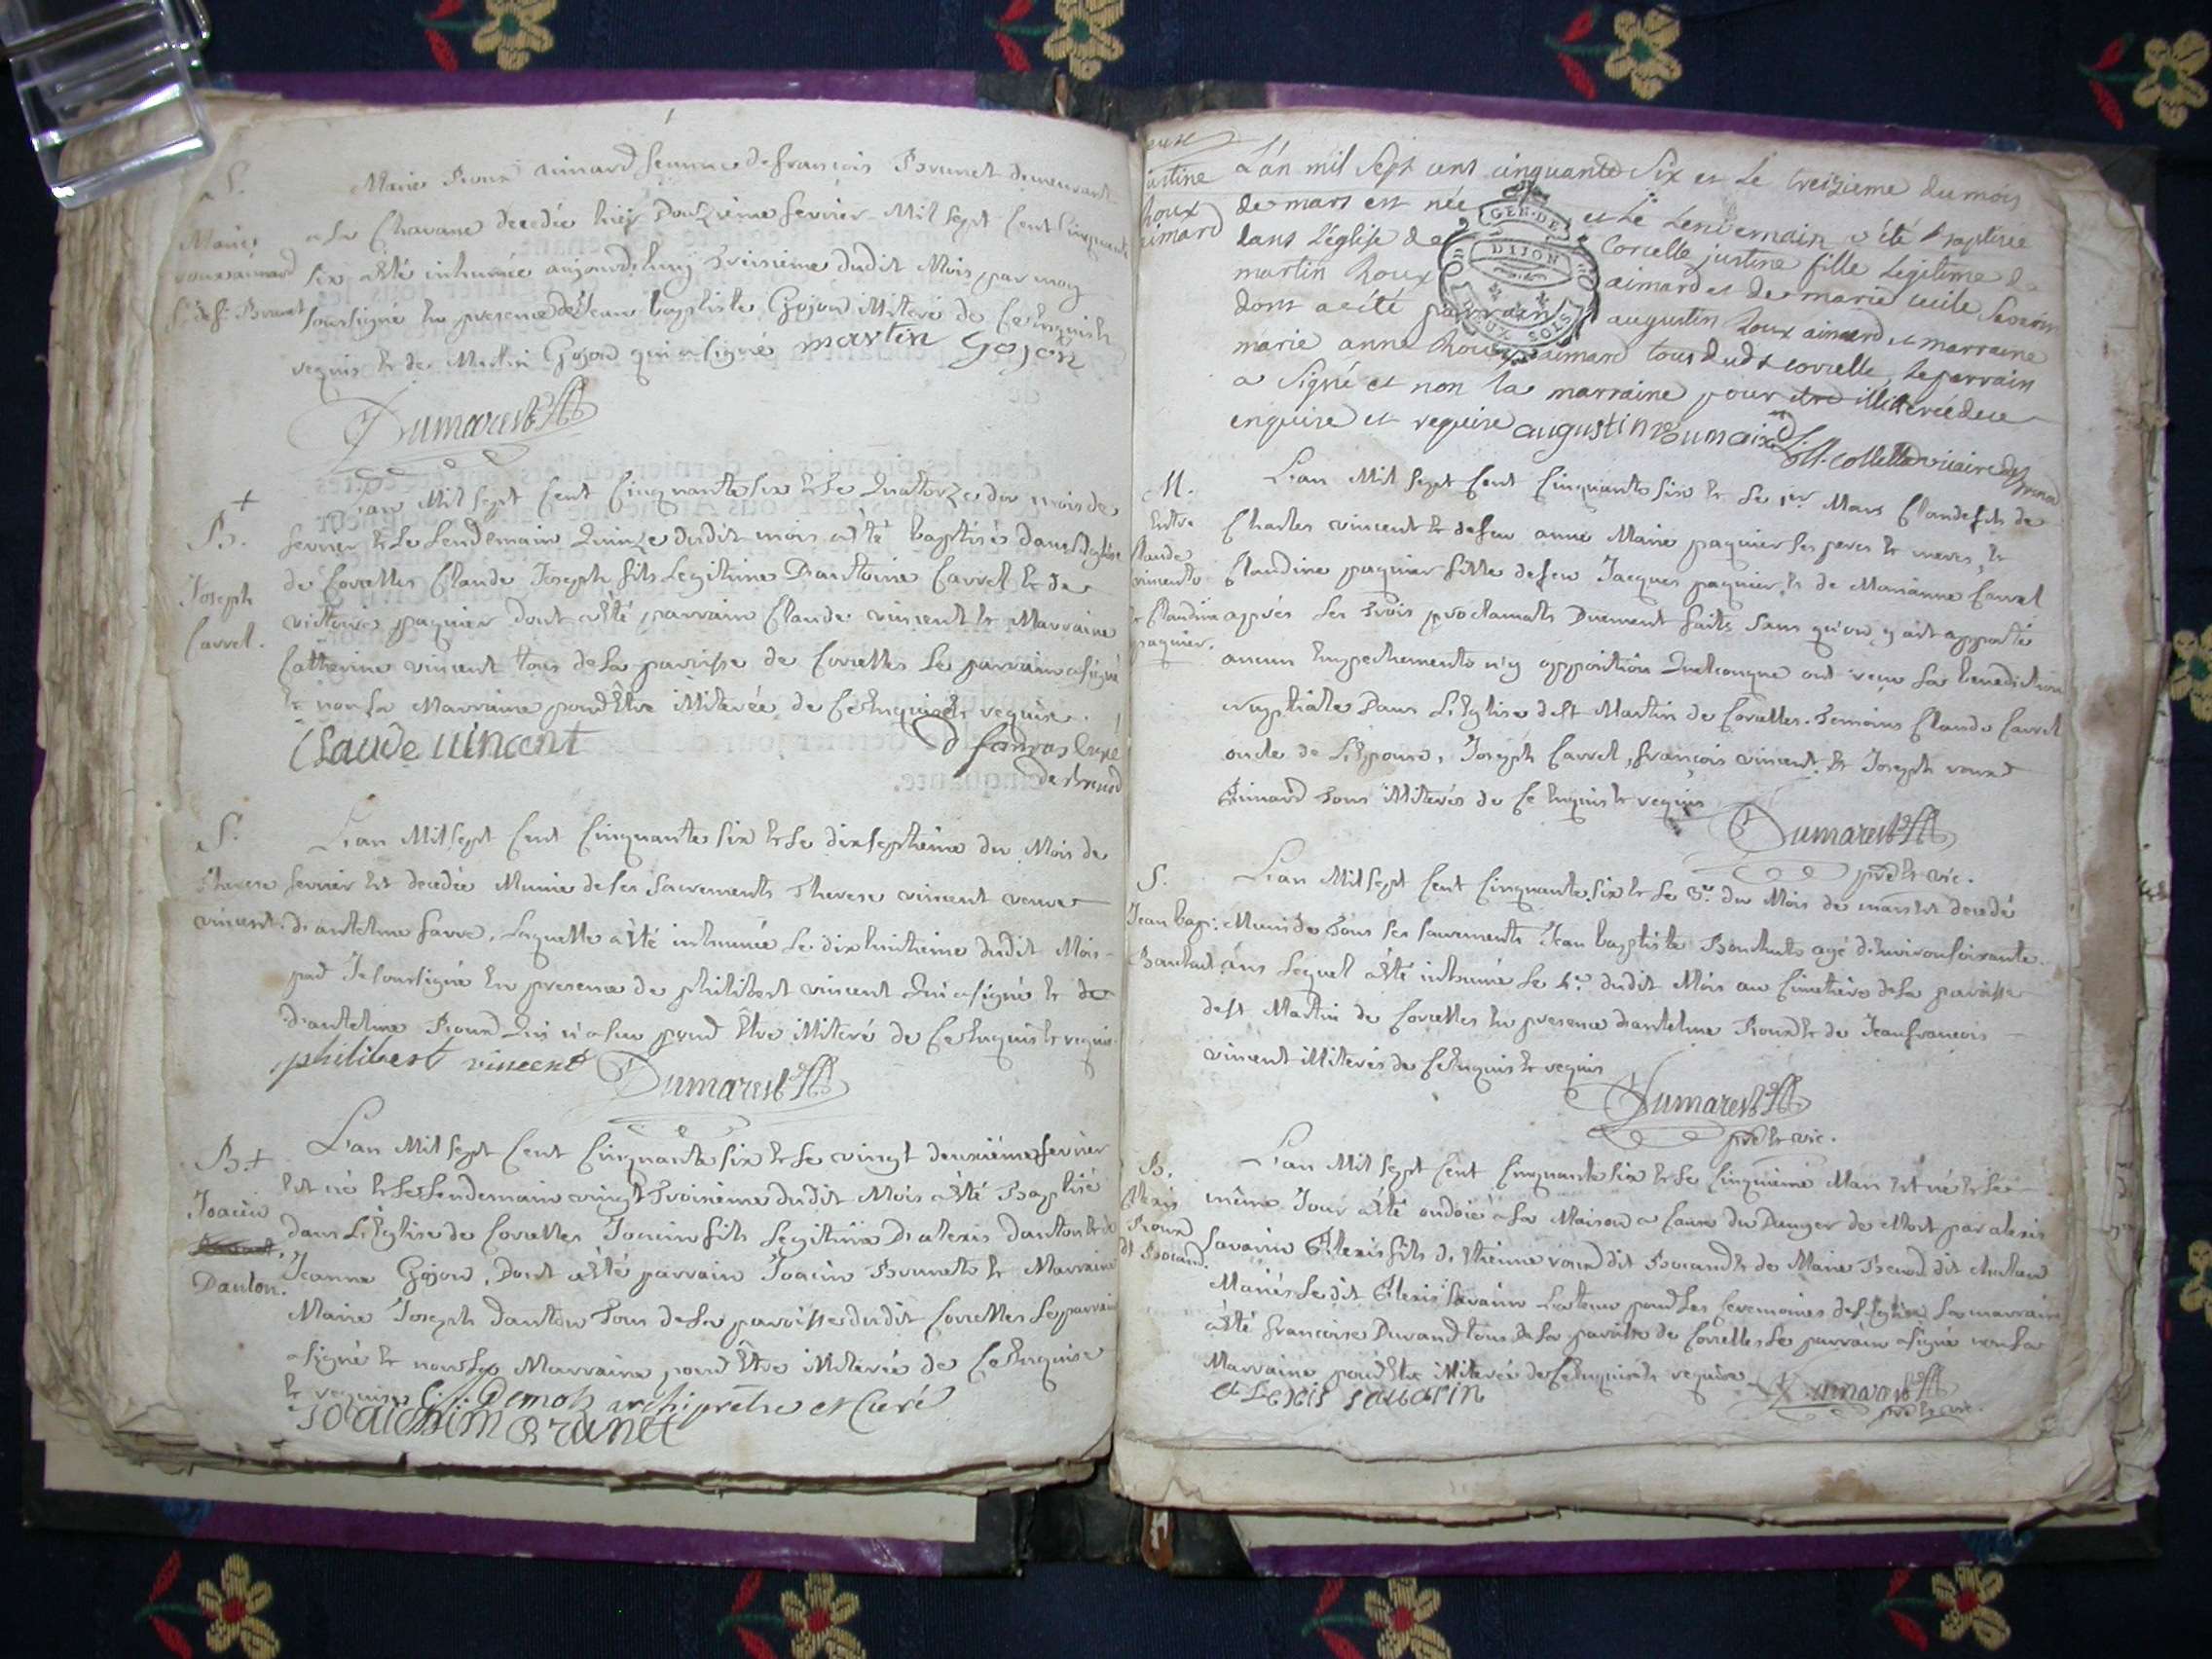 S.
Marie
roux aimard
f. de f. Brunet
Marie Roux aimard femme de francois Brunet demeurant
a la Chavane decedée hier Douzième fevrier Mil sept Cent Cinquante
six a été inhumée aujourdhuy treisieme dudit Mois par moy
soussigné En presence de Jean baptiste Gojon illiteré de Ce Enquis et
requis et de Martin Gojon qui a signé martin gojon
Dumarest
+
B.
Joseph
Carrel.
L'an Mil sept Cent Cinquante six et le Quatorze du mois de
fevrier et le Lendemain Quinze dudit mois a été baptisé dans l'Eglise
de Corcelles Claude Joseph fils Legitime D'antoine Carrel et de
victoire paquier dont a été parrain Claude vincent et Marraine
Catherine vincent tous de la paroisse de Corcelles le parrain a signé
et non la Marraine pour Etre illiterée de Ce Enquise et requise.
Claude vincent
curé
de brenod
S.
Therese
vincent.
L'an Mil sept Cent Cinquante six et le dix septième du Mois de
fevrier Est decedée Munie de ses Sacrements Therese vincent veuve
d'antelme favre, Laquelle a été inhumée Le dix huitieme dudit Mois
par Je soussigné En presence de philibert vincent Qui a signé et de
d'antelme Roux Qui n'a sceu pour Etre illiteré de Ce Enquis et requis
philibert vincent Dumarest
B. +
Joacin
Danton.
L'an Mil sept Cent Cinquante six et le vingt deuxième fevrier
Est né et le Lendemain vingt troisieme dudit Mois a été Baptisé
dans L'Eglise de Corcelles Joacin fils Legitime D'alexis danton et de
Jeanne Gojon, Dont a été parrain Joacin Brunet et Marraine
Marie Joseph danton tous de la paroisse dudit Corcelles le parrain
a signé et non la Marraine pour Etre illiterée de Ce Enquise
et requise Demoz archiprêtre et Curé
Joaichim Brunet
justine
Roux
aimard
L'an mil Sept cent cinquante Six et le treizieme du mois
de mars est née et le Lendemain a été Baptisée
dans l'église de Corcelle justine fille Legitime de
martin Roux aimard et de marie cecile Savarin
dont a été parrain augustin Roux aimard et marraine
marie anne Roux aimard tous dudt corcelle, le parrain
a Signé et non la marraine pour être illiterée de ce
enquise et requise augustin
GEN. DE
DIJON
DEUX SOLS
M.
Entre
Claude
vincent
et Claudine
paquier.
L'an Mil sept Cent Cinquante six et le 1er Mars Claude fils de
Charles vincent et de feu anne Marie paquier ses peres et meres, et
Claudine paquier fille de feu Jacques paquier, et de Marianne Carrel
après les trois proclamats Duement faits sans qu'on y ait apporté
aucun Empechement n'y opposition Quelconque ont reçu la benediction
nuptiale Dans L'Eglise de St Martin de Corcelles. Temoins Claude Carrel
oncle de L'Epouse, Joseph Carrel, françois vincent, et Joseph roux
Aimard tous illiterés de Ce Enquis et requis
Dumarest
prêtre vic.
S.
Jean bap:
L'an Mil sept Cent Cinquante six et le 3e. du Mois de mars Est decedé
Muni de tous ses sacrements Jean baptiste agé d'Environ soixante
ans Lequel a été inhumé Le 4e. dudit Mois au Cimetière de la paroisse
de St Martin de Corcelles En presence d'antelme Roux et de Jean francois
vincent illiterés de Ce Enquis et requis
Dumarest
prêtre vic.
B.
Alexis
Roux
dt Bocand.
L'an Mil sept Cent Cinquante six et le Cinquième Mars Est né et le
même Jour a été ondoié a la Maison a Cause du Danger de Mort par alexis
Savarin Alexis fils d'Etienne roux dit Bocand et de Marie
Mariés Ledit Alexis Savarin pour Les Ceremonies de l'Eglise la marraine
a été francoise Durand tous de la paroisse de Corcelles le parrain a signé non la
Marraine pour Etre illiterée de Ce Enquise et requise Dumarest
alexis savarin
prêtre vic.